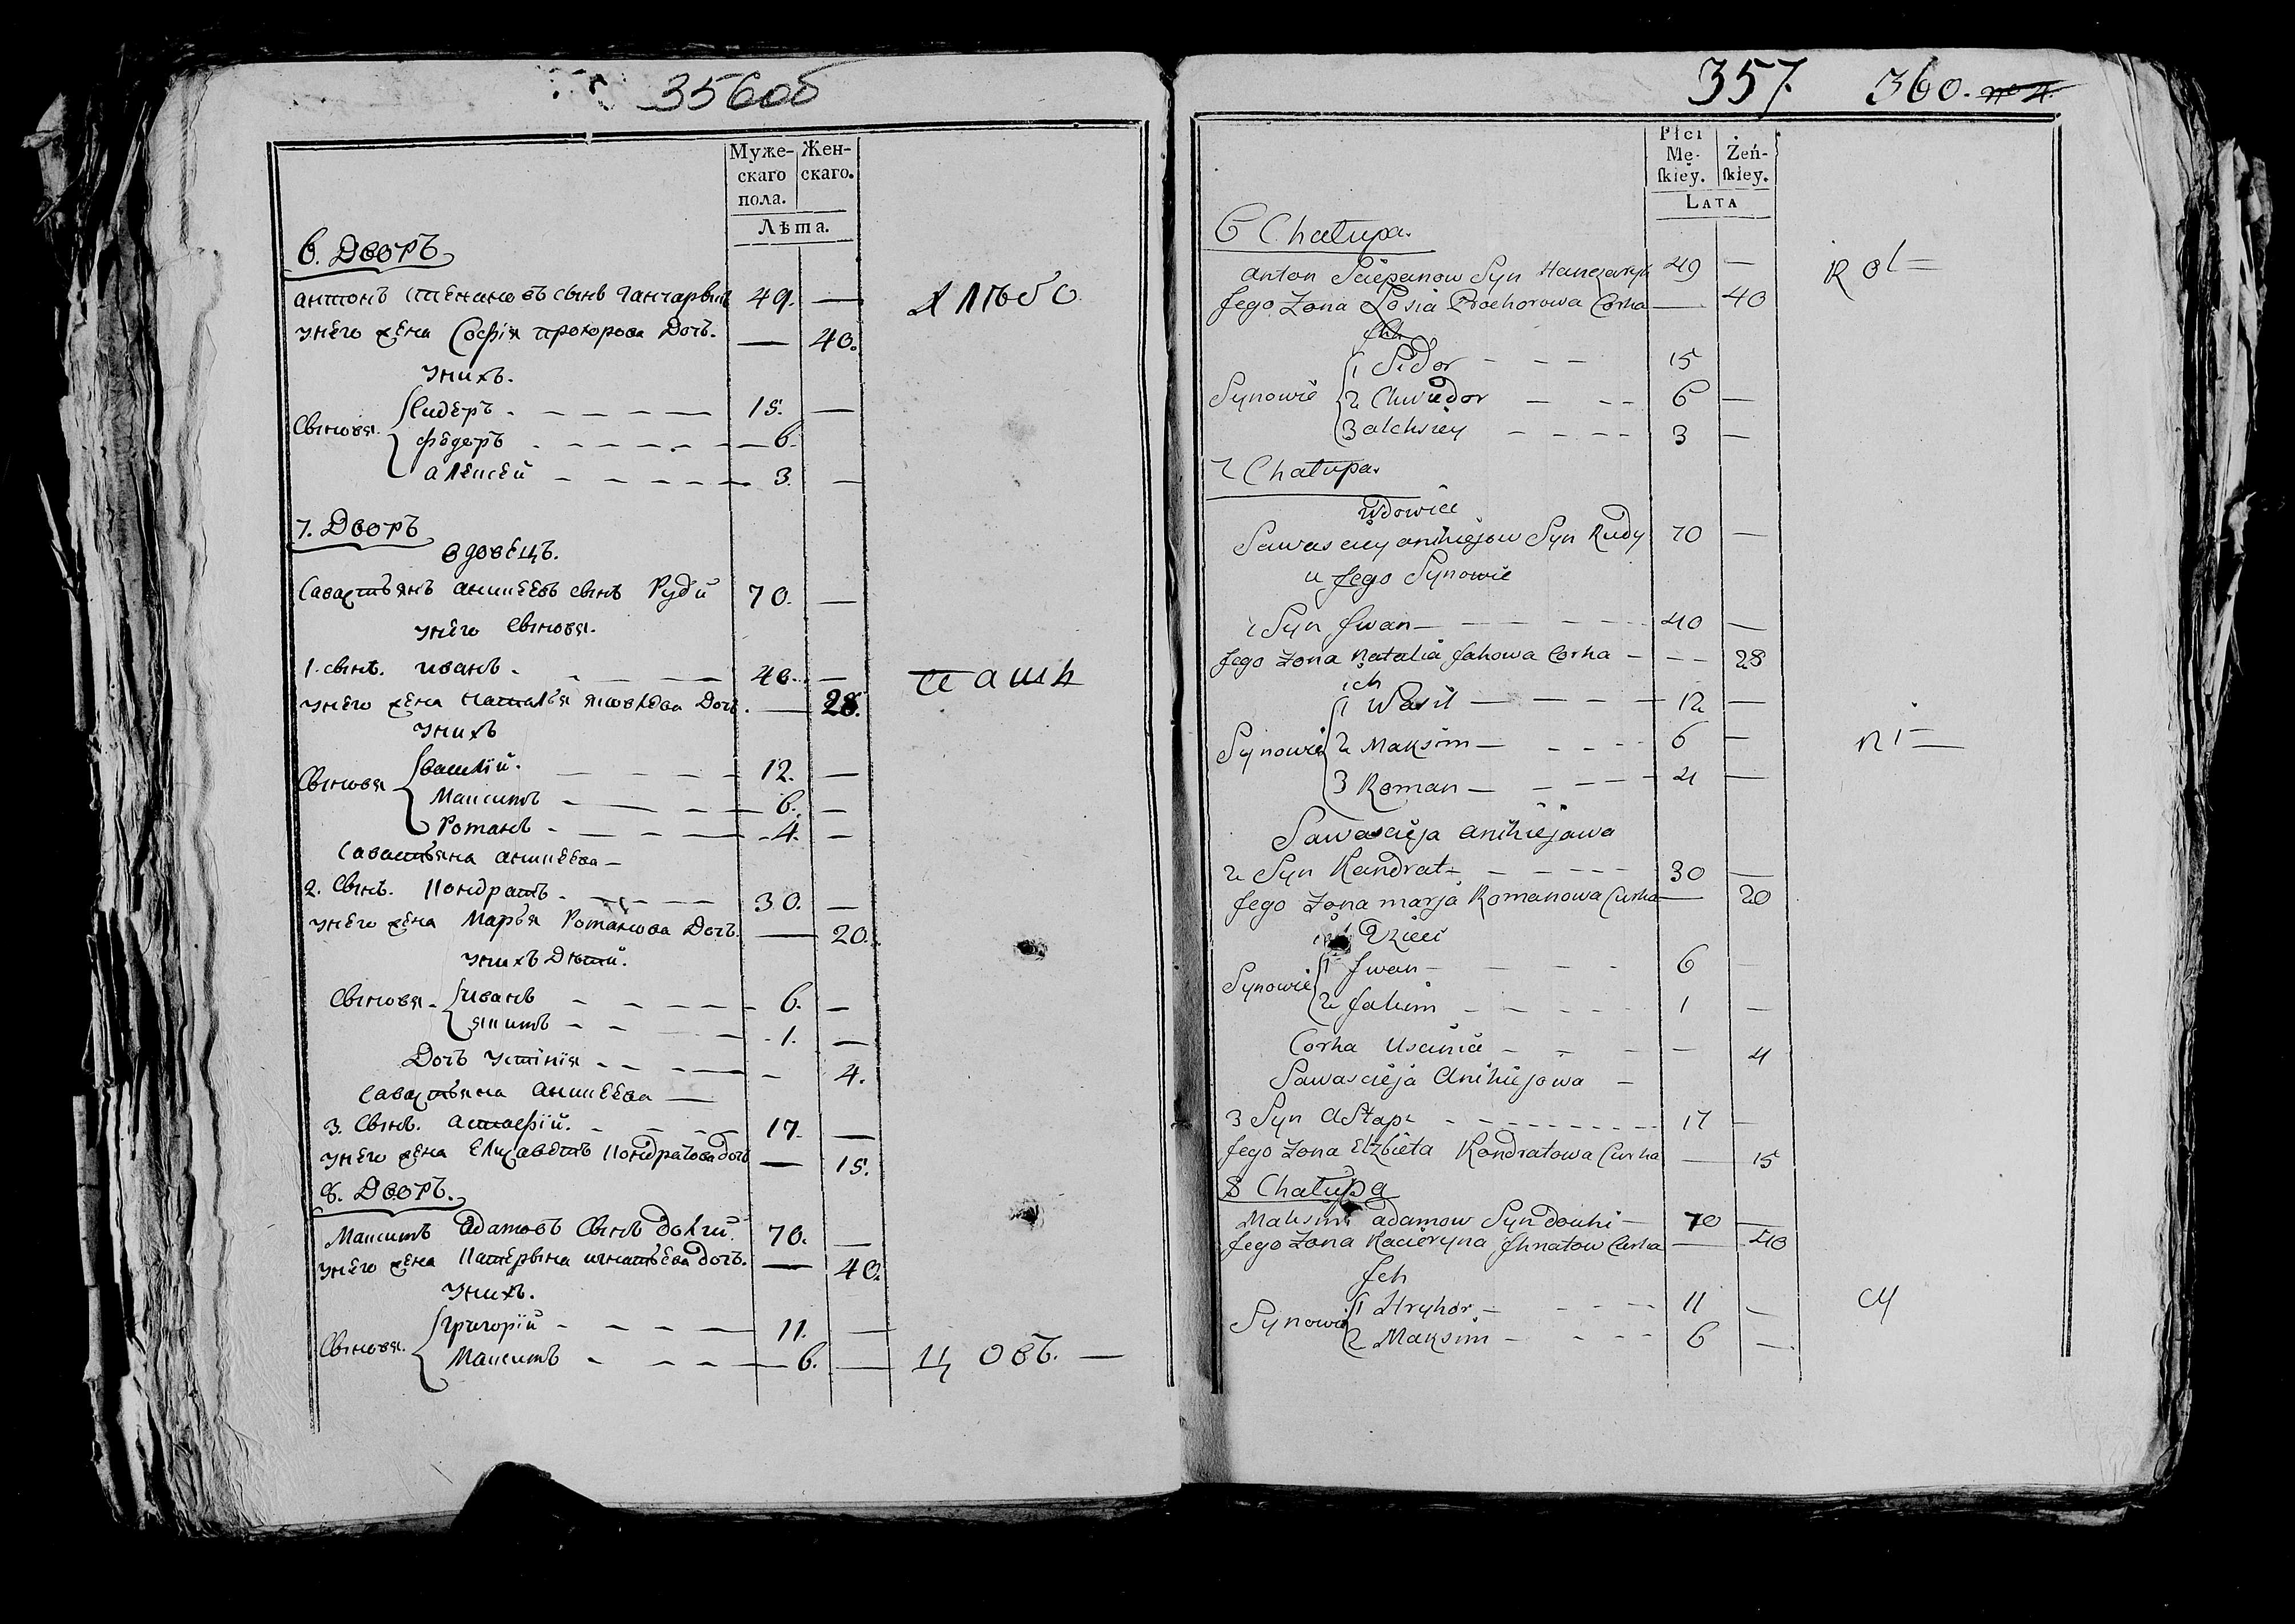 356об
Муже- Жен-
скаго скаго.
пола.
Лѣта.
6. Дворъ
антонъ степановъ сынъ ганчарыкъ 49. —
Унего жена Софія прохорова Дочь. — 40.
Унихъ.
Сидеръ - — — — — 15. —
Сынов㈠федеръ - — — — — 6.
алексей — — — — — 3. —
хлѣбо
7. Дворъ
вдовецъ.
Савастьянъ аникеевъ сынъ Рудй 70. —
Унего Сыновя.
1. сынъ. иванъ - — — 40. —
Унего жена наталья яковлева Дочь. — 28.
Унихъ
василій. — — — — 12. —
Сыновя Максимъ - — — — 6. —
Романъ - — — — 4. —
паш
Савастьяна аникеева —
2. Сынъ. Кондратъ - — — — 30. —
Унего жена Марья Романова Дочь. — 20.
Унихъ Дѣтй.
Сыновя - иванъ - — — — — 6. —
якимъ - — — — 1. —
Дочь Устінія - — — — — 4.
Савастьяна аникеева —
3. Сынъ. астафій. - — — — 17. —
Унего жена Елизаветъ Кондратова дочь — 15.
8. Дворъ.
Максимъ адамовъ Сынъ долгй. 70. —
Унего жена Катерына игнатьева дочь. — 40.
Унихъ.
григорій - — — — — 11. —
Сыновя. Максимъ - — — — 6. —
цовъ. —
357. 360.
Płci
Mę- Żeń-
ſkiey. ſkiey.
LATA
6 Chałupa.
Anton Sciepanow Syn Hanczaryk 49 —
Jego Zona Zosia Prochorowa Corka — 40
Rol=
Ich
1 Sidor - — — 15
Synowie 2 Chwiedor — - - 6 —
3 Aleksiey — - - - 3 —
7 Chałupa.
Wdowiec
Sawasciey anikiejow Syn Rudy 70 —
u Jego Synowie
1 Syn Jwan — - - - 40 —
Jego Zona Natalia Jakowa Corka — - - 28
ich
1 Wasil — — — — 12 —
Synowie 2 Maksim — - - - 6 —
3 Roman — - - - 4 —
ni=
Sawascieja Anikiejowa
2 Syn Kandrat - - - - - 30 —
Jego Zona marja Romanowa Curka — 20
ich Dzieci
1 Jwan - — - - 6 —
Synowie
2 Jakim - - - - 1 —
Corka Uscinia - - - — 4
Sawascieja Anikiejowa -
3 Syn Astap - - - - - - - 17 —
Jego Zona Elzbieta Kondratowa Curka — 15
8 Chałupa
Maksim adamow Syn douhi — 70 —
Jego Zona Kacieryna Jhnatow Curka — 40
Jch
1 Hryhor - - - - 11 —
Synowie
2 Maksim - - - - 6 —
cy